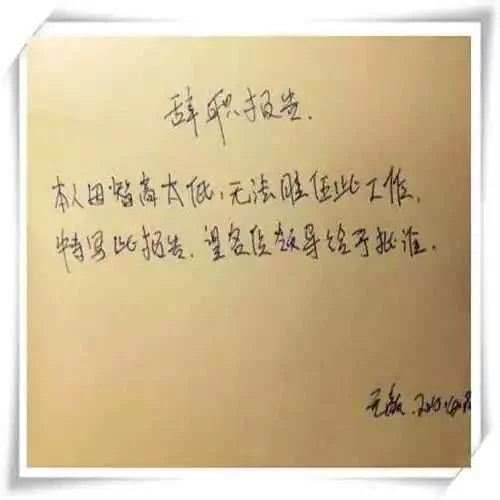 辞职报告.
本人因智商太低,无法胜任此工作,
特写此报告,望各位领导给予批准.